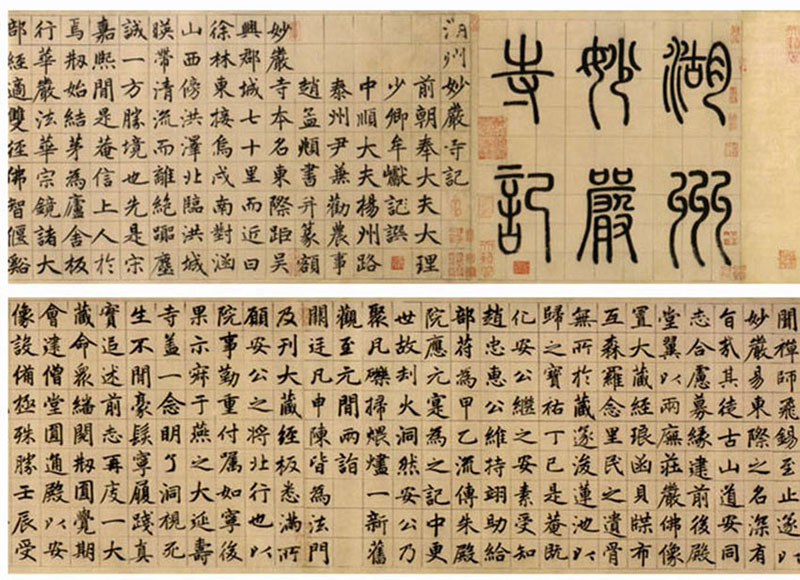 湖州
妙嚴
寺記
湖州妙嚴寺記
前朝奉大夫大理
少卿牟巘記譔
中順大夫揚州路
泰州尹兼勸農事
趙孟頫書并篆額
妙嚴寺本名東際距吳
興郡城七十里而近曰
徐林東接烏戍南對涵
山西傍洪澤北臨洪城
暎帶清流而離絕躡塵
誠一方勝境也先是宋
嘉熙間是菴信上人於
焉刱始結茅為廬舍板
行華嚴法華宗鏡諸大
部經適雙徑佛智偃谿
聞禪師飛錫至止遂以
妙嚴易東際之名深有
旨哉其徒古山道安同
志合慮募緣建前後殿
堂翼以兩廡莊嚴佛像
置大藏經琅函貝牒布
互森羅念里民之遺骨
無所於藏遂浚蓮池以
歸之寶祐丁巳是菴既
化安公繼之安素受知
趙忠惠公維持翊助給
部苻為甲乙流傳朱殿
院應元寔為之記中更
世故刦火洞然安公乃
聚凡礫掃煨燼一新舊
觀至元間兩詣
闕廷凡申陳皆為法門
及刊大藏經板悉滿所
願安公之將北行也以
院事勤重付囑如寧後
果示寂于燕之大延壽
寺蓋一念明了洞視死
生不間豪髮寧履踐真
實追述前志再庋一大
藏命衆繙閱刱圓覺期
會建僧堂圓通殿以安
像設備極殊勝壬辰受